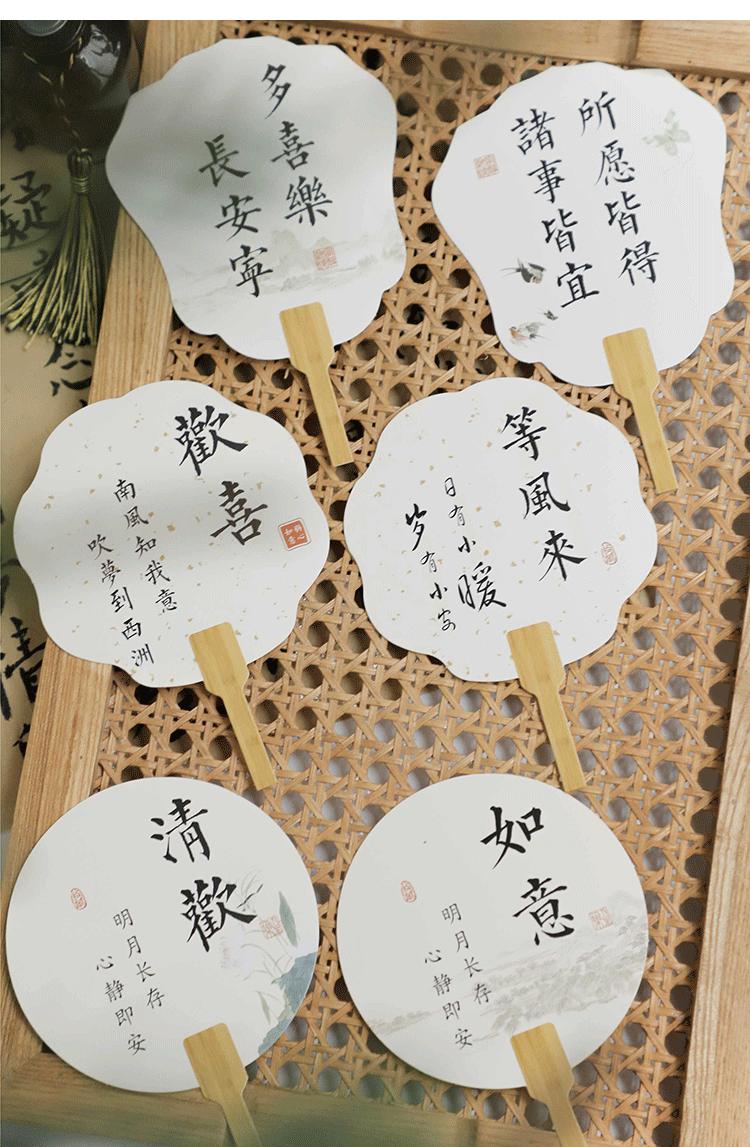 多喜樂
長安寧
所愿皆得
諸事皆宜
歡喜
南風知我意
吹夢到西洲
等風來
日有小暖
岁有小安
清歡
明月长存
心静即安
如意
明月长存
心静即安
疑